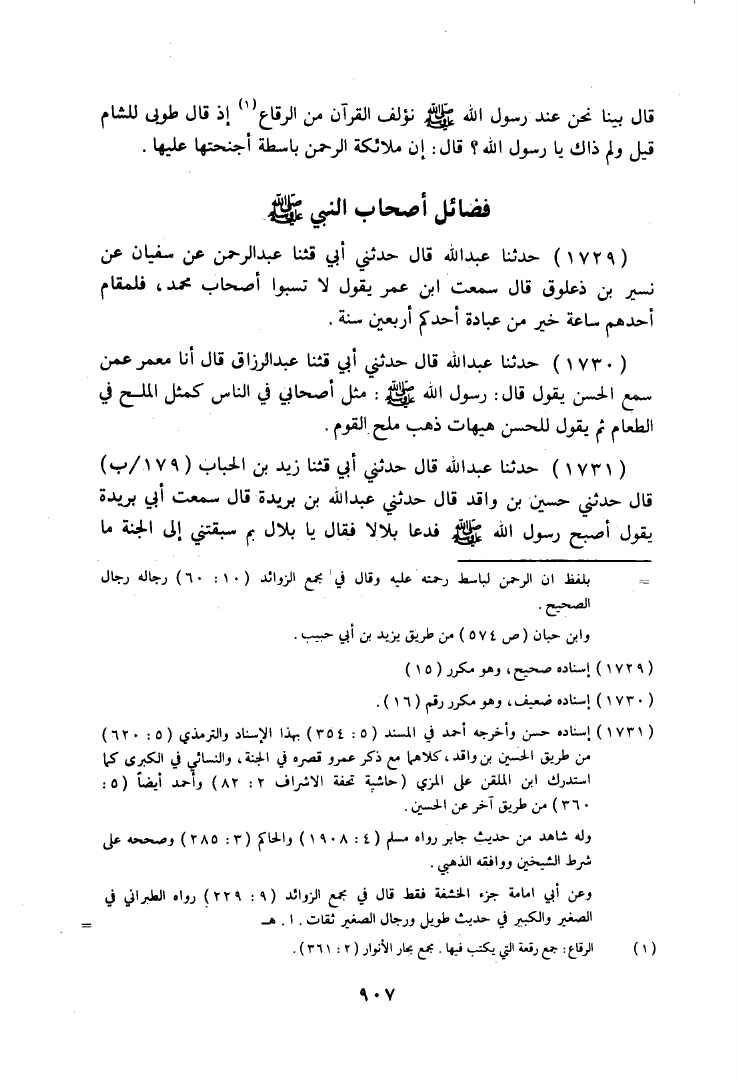 قال بينا نحن عند رسول الله ﷺ نؤلف القرآن من الرقاع (١) إذ قال طوبى للشام
قيل ولم ذاك يا رسول الله ؟ قال : إن ملائكة الرحمن باسطة أجنحتها عليها .
فضائل أصحاب النبي ﷺ
(١٧٢٩) حدثنا عبدالله قال حدثني أبي قثنا عبدالرحمن عن سفيان عن
نسير بن ذعلوق قال سمعت ابن عمر يقول لا تسبوا أصحاب محمد ، فلمقام
أحدهم ساعة خير من عبادة أحدكم أربعين سنة .
(١٧٣٠) حدثنا عبدالله قال حدثني أبي قثنا عبدالرزاق قال أنا معمر عمن
سمع الحسن يقول قال : رسول الله ﷺ : مثل أصحابي في الناس كمثل الملح في
الطعام ثم يقول للحسن هيهات ذهب ملح القوم .
(١٧٣١) حدثنا عبدالله قال حدثني أبي قثنا زيد بن الحباب (١٧٩/ب)
قال حدثني حسين بن واقد قال حدثني عبدالله بن بريدة قال سمعت أبي بريدة
يقول أصبح رسول الله ﷺ فدعا بلالا فقال يا بلال بم سبقتني إلى الجنة ما
= بلفظ ان الرحمن لباسط رحمته عليه وقال في مجمع الزوائد (١٠ : ٦٠) رجاله رجال
الصحيح .
وابن حبان (ص ٥٧٤) من طريق يزيد بن أبي حبيب .
(١٧٢٩) إسناده صحيح ، وهو مكرر (١٥)
(١٧٣٠) إسناده ضعيف ، وهو مكرر رقم (١٦) .
(١٧٣١) إسناده حسن وأخرجه أحمد في المسند (٥ : ٣٥٤) بهذا الإسناد والترمذي (٥ : ٦٢٠)
من طريق الحسين بن واقد ، كلاهما مع ذكر عمرو قصره في الجنة ، والنسائي في الكبرى كما
استدرك ابن الملقن على المزي (حاشية تحفة الاشراف ٢ : ٨٢) وأحمد أيضاً (٥ :
٣٦٠) من طريق آخر عن الحسين .
وله شاهد من حديث جابر رواه مسلم (٤ : ١٩٠٨) والحاكم (٣ : ٢٨٥) وصححه على
شرط الشيخين ووافقه الذهبي .
وعن أبي امامة جزء الخشفة فقط قال في مجمع الزوائد (٩ : ٢٢٩) رواه الطبراني في
الصغير والكبير في حديث طويل ورجال الصغير ثقات . ا . هـ =
(١) الرقاع : جمع رقعة التي يكتب فيها . مجمع بحار الأنوار (٢ : ٣٦١) .
٩٠٧